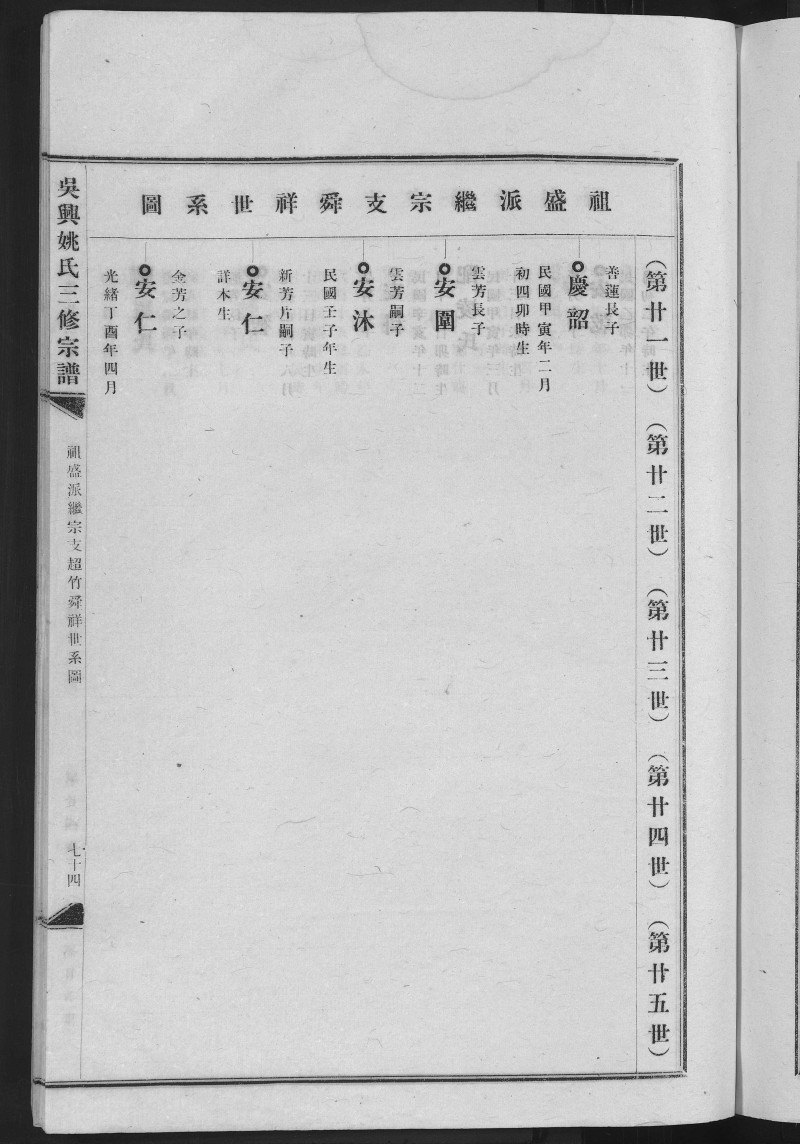 祖盛派繼宗支舜祥世系圖
（第廿一世）（第廿二世）（第廿三世）（第廿四世）（第廿五世）
善蓮長子
慶韶
民國甲寅年二月
初四卯時生
雲芳長子
安圍
雲芳嗣子
安沐
民國壬子年生
新芳片嗣子
安仁
詳木生
金芳之子
安仁
光緒丁酉年四月
吳興姚氏三修宗譜
祖盛派繼宗支超竹舜祥世系圖
七十四